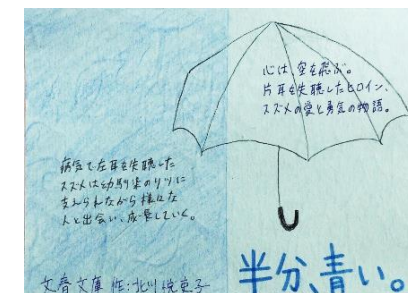 心は、空を飛ぶ。
片耳を失聴したヒロイン、
スズメの愛と勇気の物語。
病気で左耳を失聴した
スズメは幼馴染のリツに
支えられながら様々な
人と出会い、成長していく。
文春文庫 作:北川悦吏子
半分、青い。